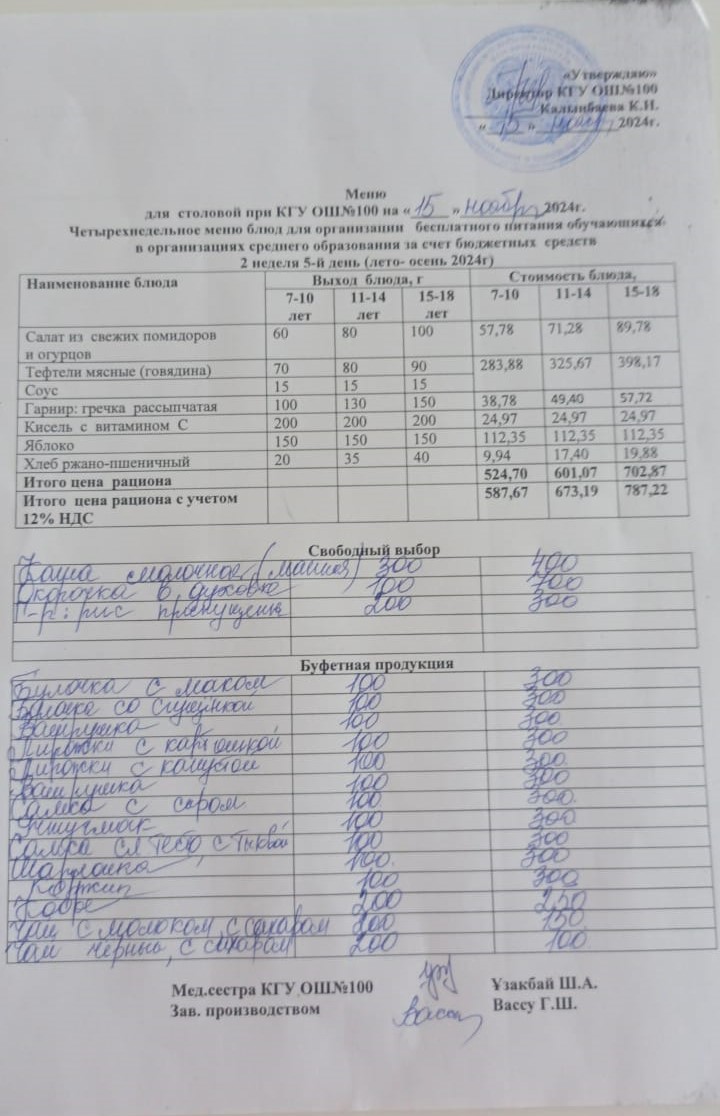 «Утверждаю»
Директор КГУ ОШ№100
Калынбаева К.И.
« 15 » 2024г.
Меню
для столовой при КГУ ОШ№100 на « 15 » ноября 2024г.
Четырехнедельное меню блюд для организации бесплатного питания обучающихся
в организациях среднего образования за счет бюджетных средств
2 неделя 5-й день (лето- осень 2024г)
Наименование блюда Выход блюда, г Стоимость блюда,
7-10 лет 11-14 лет 15-18 лет 7-10 11-14 15-18
Салат из свежих помидоров и огурцов 60 80 100 57,78 71,28 89,78
Тефтели мясные (говядина) 70 80 90 283,88 325,67 398,17
Соус 15 15 15
Гарнир: гречка рассыпчатая 100 130 150 38,78 49,40 57,72
Кисель с витамином С 200 200 200 24,97 24,97 24,97
Яблоко 150 150 150 112,35 112,35 112,35
Хлеб ржано-пшеничный 20 35 40 9,94 17,40 19,88
Итого цена рациона 524,70 601,07 702,87
Итого цена рациона с учетом 12% НДС 587,67 673,19 787,22
Свободный выбор
Каша молочная (манная) 300 400
Окорочка в духовке 100 700
Г-р: рис припущенный 200 300
Буфетная продукция
Булочка с маком 100 300
Булочка со сгущенкой 100 300
Ватрушка 100 300
Пирожки с картошкой 100 300
Пирожки с капустой 100 300
Ватрушка 100 300
Самса с сыром 100 300
100 300
Самса сл тесто, с тыквой 100 300
Шарлотка 100 300
Коржик 100 300
Кофе 200 250
Чай с молоком, с сахаром 200 150
Чай черный, с сахаром 200 100
Мед.сестра КГУ ОШ№100 Ұзакбай Ш.А.
Зав. производством Вассу Г.Ш.